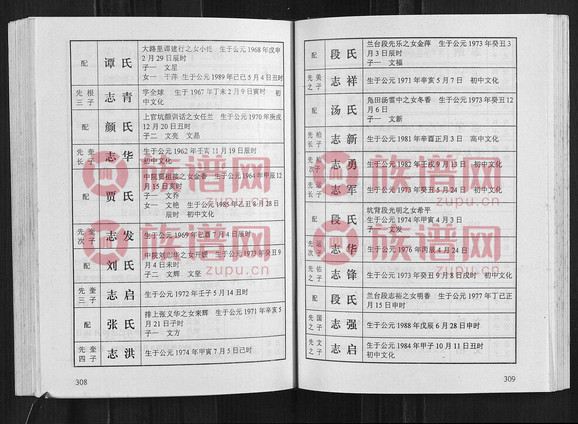 配
谭氏
大路是谭建行之女小 生于公元1968年戊申
2月29日辰时
子一 文星
女一 于萍 生于公元1989年己巳5月4日丑时
先根
三子
志青
字全球 生于1967年丁未2月9日寅时 初
中文化
配
颜氏
上官坑颜训话之女任兰 生于公元1970年庚戌
12月20日丑时
子二 文亮 文晶
先奎
长子
志华
生于公元1962年壬寅11月19日辰时
初中文化
配
贾氏
生于公元1964年甲辰12
月15日寅时
子一 文乔
女一 文艳 生于公元1985年乙丑8月28日
辰时 初中文化
先奎
次子
志发
生于公元1969年己酉7月4日辰时
配
刘氏
生于公元1973年癸丑9
月4日未时
子二 文辉 文坚
先奎
三子
志启
生于公元1972年壬子5月14丑时
配
张氏
排上张义华之女来辉 生于公元1971年辛亥5
月21日子时
子一 文方
先奎
四子
志洪
生于公元1974年甲寅7月5日己时
308
配
段氏
兰台段先乐之女金萍 生于公元1973年癸丑3
月3日辰时
子一 文福
先美
之子
志祥
生于公元1971年辛亥5月7日 初中文化
配
汤氏
汤雪中之女冬香 生于公元1973年癸丑12
月6日
子一 文新
先柏
长子
志新
生于公元1981年辛酉正月3日 高中文化
先柏
次子
志勇
生于公元1982年壬戌9月13日 初中文化
志军
生于公元1973年癸丑5月24日 初中文化
配
段氏
坑背段光明之女希平
生于公元1974年甲寅4月3日
子一 文发
次子
志华
生于公元1976年丙辰4月24日
先佑
之子
志锋
生于公元1973年癸丑9月8日戌时 初中文化
配
段氏
兰台段志裕之女明香 生于公元1977年丁巳正
月15日申时
先国
之子
志强
生于公元1988年戊辰6月28日申时
先文
之子
志启
生于公元1984年甲子10月11日丑时
初中文化
309
族谱网
zupu.cn
族谱网
zupu.cn
族谱网
zupu.cn
族谱网
zupu.cn